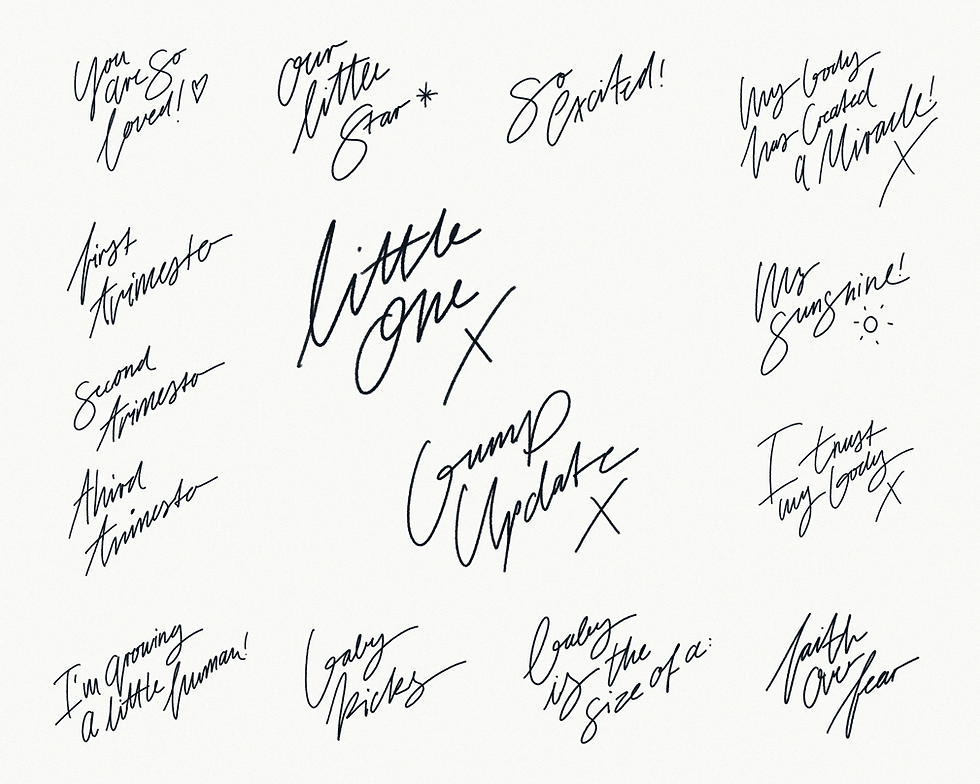 You
are so
loved! ♡
our
little
star *
So
excited!
My body
has created
a Miracle!
X
first
Trimester
little
one
X
My
sunshine!
Second
Trimester
Bump
Update
X
I trust
my body
X
Third
Trimester
I'm growing
a little human!
baby
kicks
baby
is the
size of a:
faith
over
fear